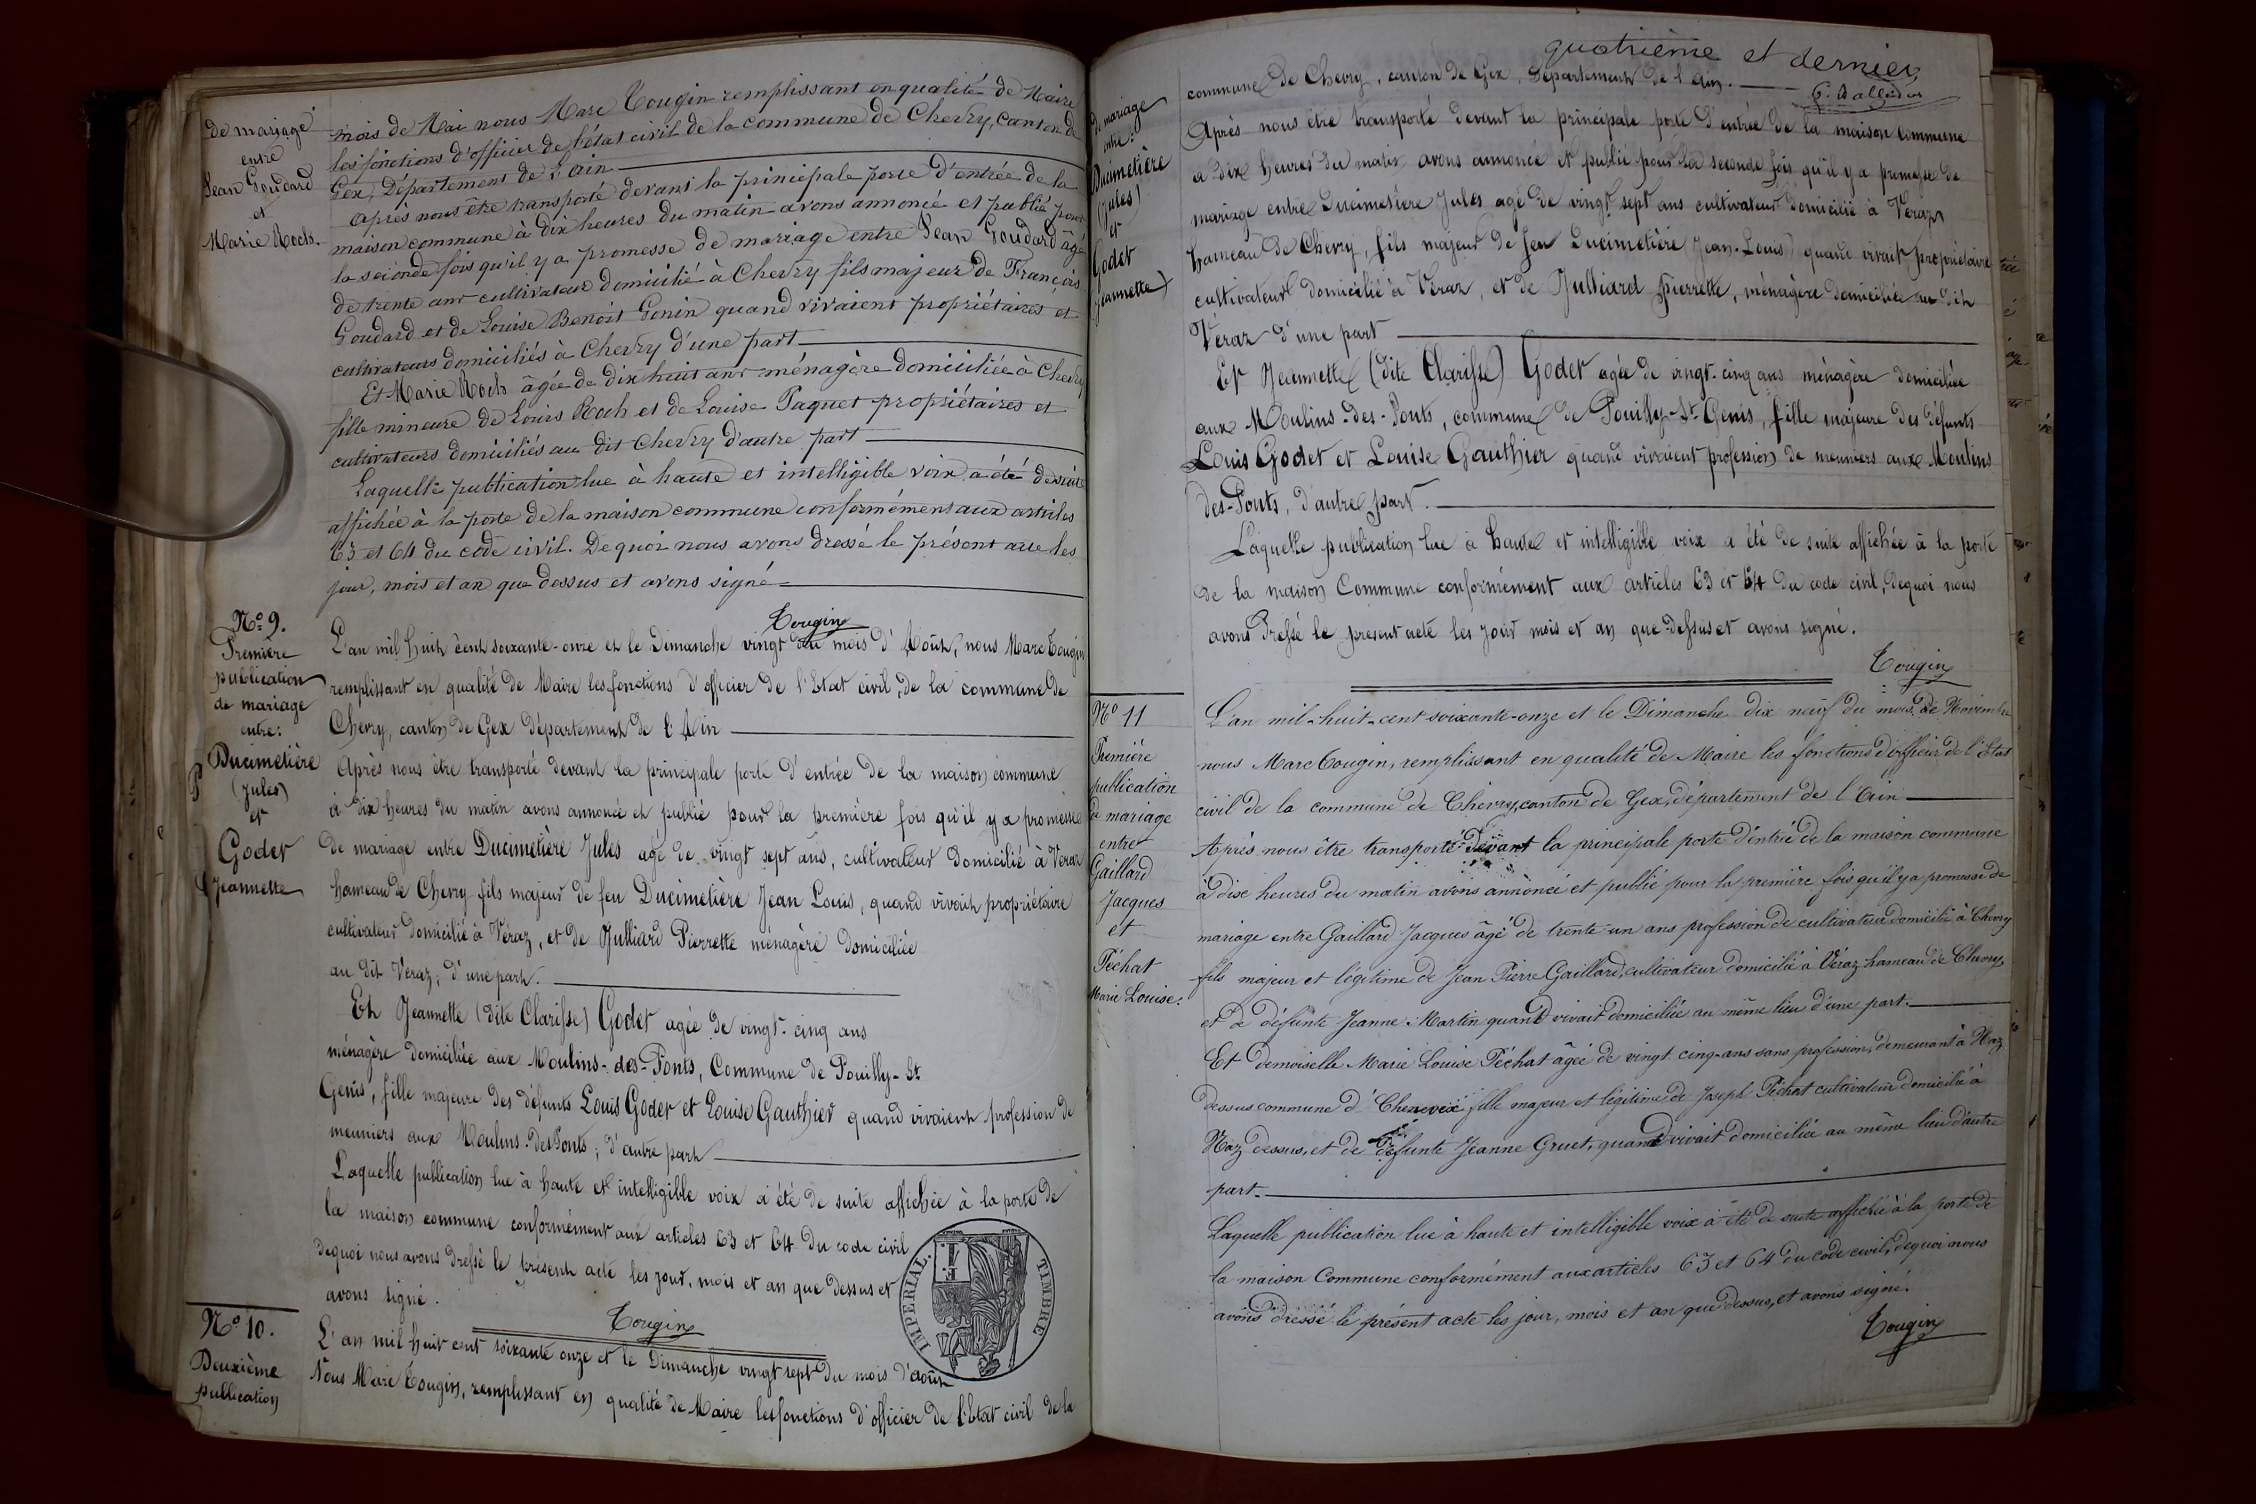 de mariage
entre
Jean Goudard
et
Marie Roch.
mois de Mai nous Marc Tougin remplissant en qualité de Maire
les fonctions d'officier de l'état civil de la commune de Chevry, canton de
Gex, Département de l'Ain
Après nous être transporté devant la principale porte d'entrée de la
maison commune à dix heures du matin avons annoncé et publié pour
la seconde fois qu'il y a promesse de mariage entre Jean Goudard âgé
de trente ans cultivateur domicilié à Chevry fils majeur de François
Goudard et de Louise Benoit Gonin quand vivaient propriétaires et
cultivateurs domiciliés à Chevry d'une part
Et Marie Roch âgée de dix huit ans ménagère domiciliée à Chevry
fille mineure de Louis Roch et de Louise Paquet propriétaires et
cultivateurs domiciliés au dit Chevry d'autre part
Laquelle publication lue à haute et intelligible voix a été de suite
affichée à la porte de la maison commune conformément aux articles
63 et 64 du code civil. De quoi nous avons dressé le présent acte les
jour, mois et an que dessus et avons signé
Tougin
No 9.
Première
publication
de mariage
entre:
Ducimetière
(Jules)
et
Godet
Jeannette
L'an mil huit cent soixante-onze et le Dimanche vingt du mois d'Août, nous Marc Tougin
remplissant en qualité de Maire les fonctions d'officier de l'Etat civil, de la commune de
Chevry, canton de Gex département de l'Ain
Après nous être transporté devant la principale porte d'entrée de la maison commune
à dix heures du matin avons annoncé et publié pour la première fois qu'il y a promesse
de mariage entre Ducimetière Jules agé de vingt sept ans, cultivateur domicilié à Véraz
hameau de Chevry fils majeur de feu Ducimetière Jean Louis, quand vivait propriétaire
cultivateur domicilié à Véraz, et de Julliard Pierrette ménagère domiciliée
au dit Véraz, d'une part.
Et Jeannette (dite Clarisse) Godet agée de vingt-cinq ans
ménagère domiciliée aux Moulins-des-Ponts, Commune de Pouilly-St
Genis, fille majeure des défunts Louis Godet et Louise Gauthier quand vivaient profession de
meuniers aux Moulins-des Ponts; d'autre part
Laquelle publication lue à haute et intelligible voix a été de suite affichée à la porte de
la maison commune conformément aux articles 63 et 64 du code civil
dequoi nous avons dressé le présent acte les jour, mois et an que dessus et
avons signé.
Tougin
IMPERIAL.
TIMBRE
No 10.
Deuxième
publication
L'an mil huit cent soixante onze et le Dimanche vingt sept du mois d'août
Nous Marc Tougin, remplissant en qualité de Maire les fonctions d'officier de l'Etat civil de la
quatrième et dernier
de mariage
entre:
Ducimetière
(Jules)
et
Godet
(Jeannette)
commune de Chevry, canton de Gex, Département de l'Ain.
Après nous être transporté devant la principale porte d'entrée de la maison commune
à dix heures du matin avons annoncé et publié pour la seconde fois qu'il y a promesse de
mariage entre Ducimetière Jules agé de vingt sept ans cultivateur domicilié à Véraz
hameau de Chevry, fils majeur de feu Ducimetière (Jean-Louis) quand vivait propriétaire
cultivateur domicilié à Véraz, et de Julliard Pierrette, ménagère domiciliée au dit
Véraz d'une part
Et Jeannette (dite Clarisse) Godet agée de vingt-cinq ans ménagère domiciliée
aux Moulins-des-Ponts, commune de Pouilly-St-Genis, fille majeure des défunts
Louis Godet et Louise Gauthier quand vivaient profession de meuniers aux Moulins
des-Ponts, d'autre part.
Laquelle publication lue à haute et intelligible voix a été de suite affichée à la porte
de la maison Commune conformément aux articles 63 et 64 du code civil, dequoi nous
avons dressé le present acte les jour mois et an que dessus et avons signé.
Tougin
No 11
Première
publication
de mariage
entre
Gaillard
Jacques
et
Péchat
Marie Louise:
L'an mil-huit-cent soixante-onze et le Dimanche dix neuf du mois de Novembre
nous Marc Tougin, remplissant en qualité de Maire les fonctions d'officier de l'Etat
civil de la commune de Chevry, canton de Gex, département de l'Ain
Après nous être transporté devant la principale porte d'entrée de la maison commune
à dix heures du matin avons annoncé et publié pour la première fois qu'il y a promesse de
mariage entre Gaillard Jacques âgé de trente-un ans profession de cultivateur domicilié à Chevry
fils majeur et légitime de Jean Pierre Gaillard, cultivateur domicilié à Véraz hameau de Chevry,
et de défunte Jeanne Martin quand vivait domiciliée au même lieu d'une part.
Et demoiselle Marie Louise Péchat âgée de vingt cinq-ans sans profession, demeurant à Naz
dessus commune d'Chenevex fille majeur et légitime de Joseph Péchat cultivateur domicilié à
Naz dessus, et de défunte Jeanne Gruet, quand vivait domiciliée au même lieu d'autre
part.
Laquelle publication lue à haute et intelligible voix a été de suite affichée à la porte de
la maison Commune conformément aux articles 63 et 64 du code civil, dequoi nous
avons dressé le présent acte les jour, mois et an que dessus, et avons signé.
Tougin